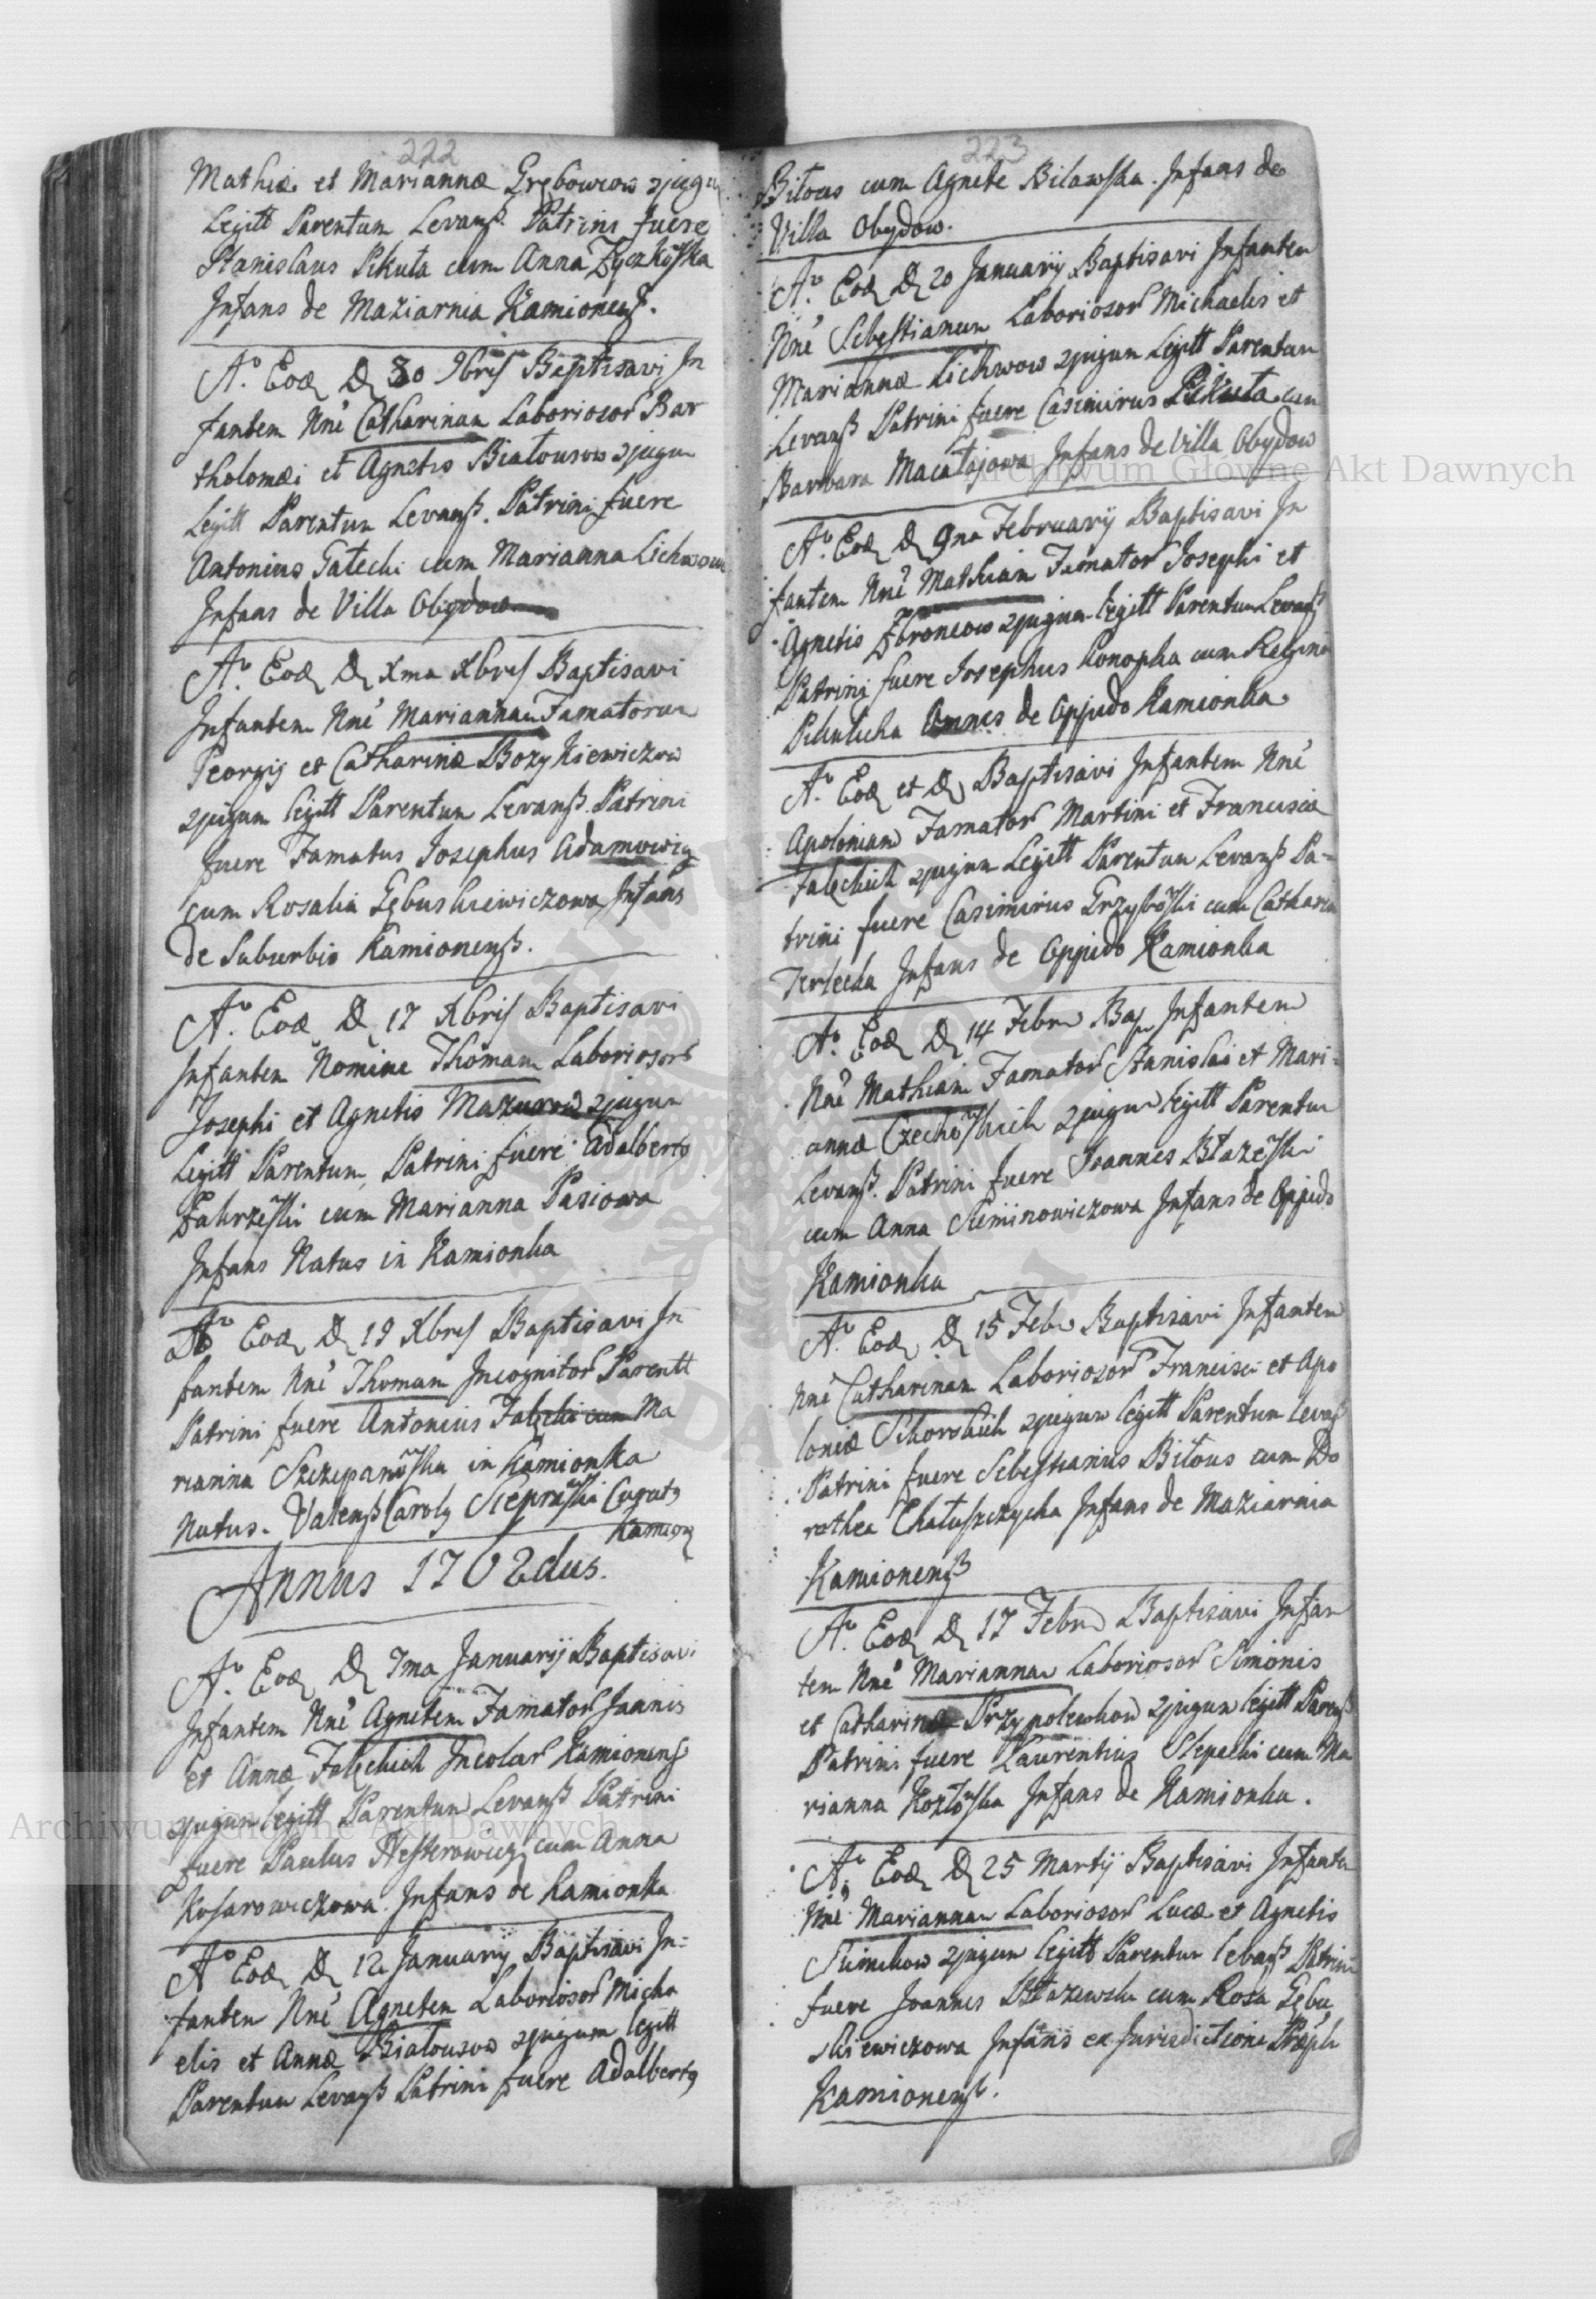 222
Mathiæ et Mariannæ Grębowiow 2jugu
Legitt Parentum Levanß. Patrini fuere
Stanislaus Pikuta cum Anna Zyczkoska
Infans de Maziarnia Kamionenß.
Ao. Eod D 30 9bris Baptisavi In
fantem Nne Catharinam Laborioso℟ Bar
tholomæi et Agnetis Białousow 2jugum
Legitt Parentum Levanß. Patrini fuere
Antonius Gałecki cum Marianna Lichwow
Infans de Villa Obydow
Ao. Eod D Xma Xbris Baptisavi
Infantem Nne Mariannam Famatorum
Georgij et Catharinæ Bozykiewiczow
2jugum legitt Parentum Levanß. Patrini
fuere Famatus Josephus Adamowicz
cum Rosalia Gębuskiewiczowa Infans
de Suburbio Kamionenß.
Ao. Eod D 17 Xbris Baptisavi
Infantem Nomine Thomam Laborioso℟
Josephi et Agnetis Mazurow 2jugum
Legitt Parentum, Patrini fuere Adalbertg
Zakrzeski cum Marianna Pasiowa
Infans Natus in Kamionka
Ao Eod D 19 Xbris Baptisavi In
fantem Nne Thomam Incognito℟ Parentt
Patrini fuere Antonius Falęcki cum Ma
rianna Szczepanoska in Kamionka
Natus. Valenß Carolg Siepraski Curatg
Kamion
Annus 1762dus.
Ao Eod D 7ma Januarij Baptisavi
Infantem Nne Agnetem Famato℟ Joannis
et Annæ Falęckich Incola℟ Kamionenß
2jugum legitt Parentum Levanß Patrini
fuere Paulus Nesterowicz cum Anna
Kosarowiczowa. Infans de Kamionka
Ao Eod D 12 Januarij Baptisavi In=
fantem Nne Agnetem Laborioso℟ Micha
elis et Annæ Białousow 2jugum legitt
Parentum Levanß Patrini fuere Adalbertg
223
Biłous cum Agnete Bilawska. Infans de
Villa Obydow.
Ao. Eod D 20 Januarij Baptisavi Infantem
Nne Sebestianum Laborioso℟ Michaelis et
Mariannæ Lichwow 2jugum Legitt Parentum
Levanß Patrini fuere Casimirus Pikuta cum
Barbara Macałajowa Infans de Villa Obydow
Ao. Eod D 9na Februarij Baptisavi In
fantem Nne Mathiam Famato℟ Josephi et
Agnetis Zbroncow 2jugum legitt Parentum Levanß
Patrini fuere Josephus Konopka cum Regina
Pikulicka Omnes de Oppido Kamionka
Ao. Eod et D Baptisavi Infantem Nne
Apoloniam Famato℟ Martini et Francisca
Falęckich 2jugum Legitt Parentum Levanß Pa=
trini fuere Casimirus Grzyboski cum Catharina
Terlecka Infans de Oppido Kamionka
Ao. Eod D 14 Febru Bap Infantem
Nne Mathiam Famato℟ Stanislai et Mari=
annæ Czechoskich 2jugum legitt Parentum
Levanß. Patrini fuere Joannes Błazeski
cum Anna Siminowiczowa Infans de Oppido
Kamionka
Ao. Eod D 15 Febru Baptisavi Infantem
Nne Catharinam Laborioso℟ Francisci et Apo
loniæ Sikorskich 2jugum legitt Parentum levanß
Patrini fuere Sebestianus Biłous cum Do
rothea Chałuszczycka Infans de Maziarnia
Kamionenß
Ao. Eod D 17 Febru Baptisavi Infan
tem Nne Mariannam Laborioso℟ Simonis
et Catharinæ Przypolewkow 2jugum legitt Parenß
Patrini fuere Laurentius Slepecki cum Ma
rianna Kozłoska Infans de Kamionka.
Ao. Eod D 25 Martij Baptisavi Infantem
Nne Mariannam Laborioso℟ Lucæ et Agnetis
Simkow 2jugum legitt Parentum levanß Patrini
fuere Joannes Błazewski cum Rosa Gębu
skiewiczowa Infans ex Jurisdictione Præpli
Kamionenß.
Archiwum Główne Akt Dawnych
Archiwum Główne Akt Dawnych